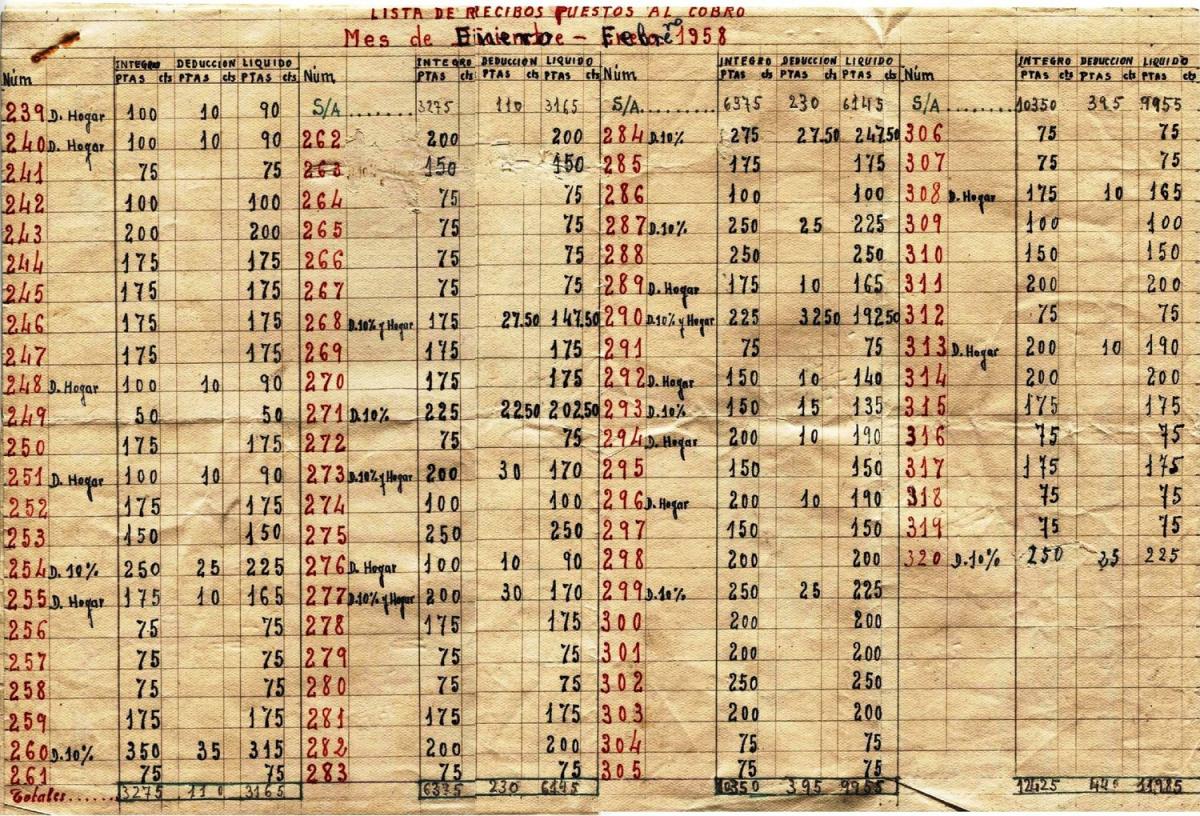 LISTA DE RECIBOS PUESTOS AL COBRO
Mes de Enero - Febrº 1958
Núm INTEGRO PTAS cts DEDUCCION PTAS cts LIQUIDO PTAS cts
239 D. Hogar 100 10 90
240 D. Hogar 100 10 90
241 75 75
242 100 100
243 200 200
244 175 175
245 175 175
246 175 175
247 175 175
248 D. Hogar 100 10 90
249 50 50
250 175 175
251 D. Hogar 100 10 90
252 175 175
253 150 150
254 D. 10% 250 25 225
255 D. Hogar 175 10 165
256 75 75
257 75 75
258 75 75
259 175 175
260 D.10% 350 35 315
261 75 75
Totales...... 3275 110 3165
Núm INTEGRO PTAS cts DEDUCCION PTAS cts LIQUIDO PTAS cts
S/A ....... 3275 110 3165
262 200 200
263 150 150
264 75 75
265 75 75
266 75 75
267 75 75
268 D.10% y Hogar 175 27.50 147.50
269 175 175
270 175 175
271 D.10% 225 2250 20250
272 75 75
273 D.10% y Hogar 200 30 170
274 100 100
275 250 250
276 D. Hogar 100 10 90
277 D.10% y Hogar 200 30 170
278 175 175
279 75 75
280 75 75
281 175 175
282 200 200
283 75 75
6375 230 6145
Núm INTEGRO PTAS cts DEDUCCION PTAS cts LIQUIDO PTAS cts
S/A ........ 6375 230 6145
284 D.10% 275 27.50 24750
285 175 175
286 100 100
287 D.10% 250 25 225
288 250 250
289 D. Hogar 175 10 165
290 D.10% y Hogar 225 3250 19250
291 75 75
292 D. Hogar 150 10 140
293 D.10% 150 15 135
294 D. Hogar 200 10 190
295 150 150
296 D. Hogar 200 10 190
297 150 150
298 200 200
299 D.10% 250 25 225
300 200 200
301 200 200
302 250 250
303 200 200
304 75 75
305 75 75
10350 395 9955
Núm INTEGRO PTAS cts DEDUCCION PTAS cts LIQUIDO PTAS cts
S/A ........ 10350 395 9955
306 75 75
307 75 75
308 D. Hogar 175 10 165
309 100 100
310 150 150
311 200 200
312 75 75
313 D. Hogar 200 10 190
314 200 200
315 175 175
316 75 75
317 175 175
318 75 75
319 75 75
320 D.10% 250 25 225
12425 440 11985